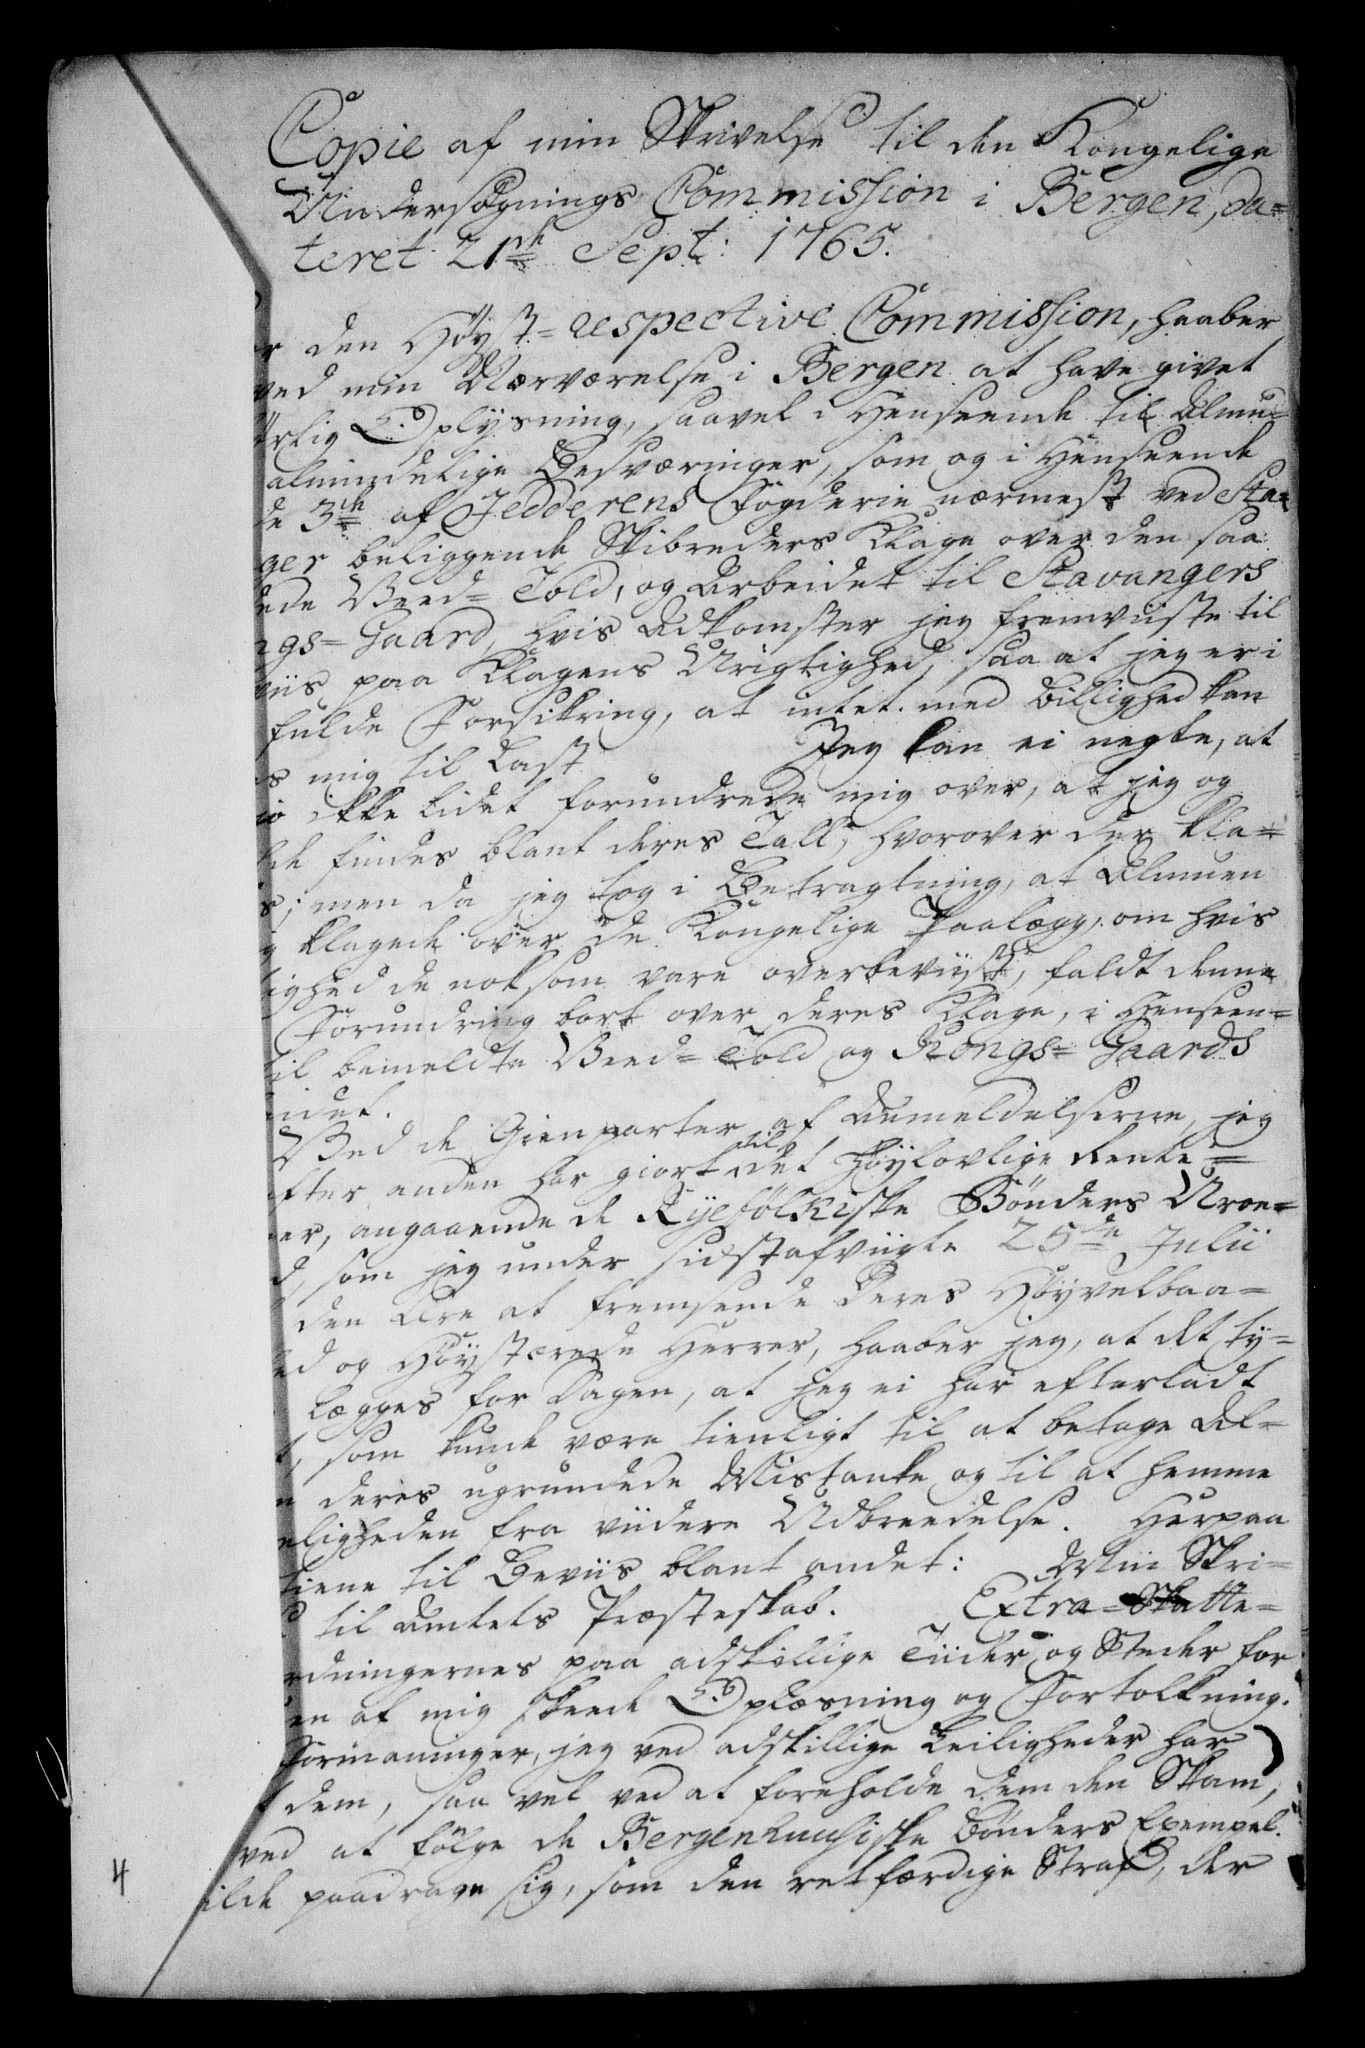 Copie af min Skrivelse til den Kongelige
Undersøgnings Commission i Bergen, da=
teret 21de Sept: 1765.
r den Høyst=respective Commission, haaber
ved min Nærværelse i Bergen at have givet
rlig Oplysning, saavel i Henseende til Almu=
almindelige Besværinger, som og i Henseende
de 3de af Jedderens Fogderie nærmest ved Sta=
ger beliggende Skibreders Klage over den saa
ede Veed=Told, og Arbeidet til Stavangers
ngs=Gaard, hvis Adkomster jeg fremviiste til
viis paa Klagens Urigtighed, saa at jeg er i
fulde Forsikring, at intet med Billighed kan
s mig til Last Jeg kan ei negte, at
io ikke lidet forundrede mig over, at jeg og
de findes blant deres Tall, hvorover der kla=
s; men da jeg tog i Betragtning, at Almuen
g klagede over de Kongelige Paalægg, om hvis
ighed de noksom vare overbeviist, faldt denne
Forundring bort over deres Klage, i Henseen=
til bemeldte Veed=Told og Kongs=Gaards
idet.
Ved de Gienparter af Anmeldelserne, jeg
efter anden har giort til det Høylovlige Rente=
er, angaaende de Ryefølkiske Bønders Uroe=
d, som jeg under sidstafvigte 25de Julii
den Ære at fremsende Deres Høyvelbaa=
ed og Høystærede Herrer, haaber jeg, at det ty=
lægges for Dagen, at jeg ei har efterladt
t, som kunde være tienligt til at betage Al=
n deres ugrundede Mistanke og til at hemme
eligheden fra viidere Udbreedelse. Herpaa
tiene til Beviis blant andet: Min Skri=
til Amtets Præsteskab. Extra=Skatte=
rdningernes paa adskillige Tiider og Steder for
en af mig skeede Oplæsning og Fortolkning.
Formaninger, jeg ved adskillige Leiligheder har
t dem, saa vel ved at foreholde dem den Skam,
ved at følge de Bergenhuusiske Bønders Exempel
ilde paadrage sig, som den retfærdige Straf, der
4